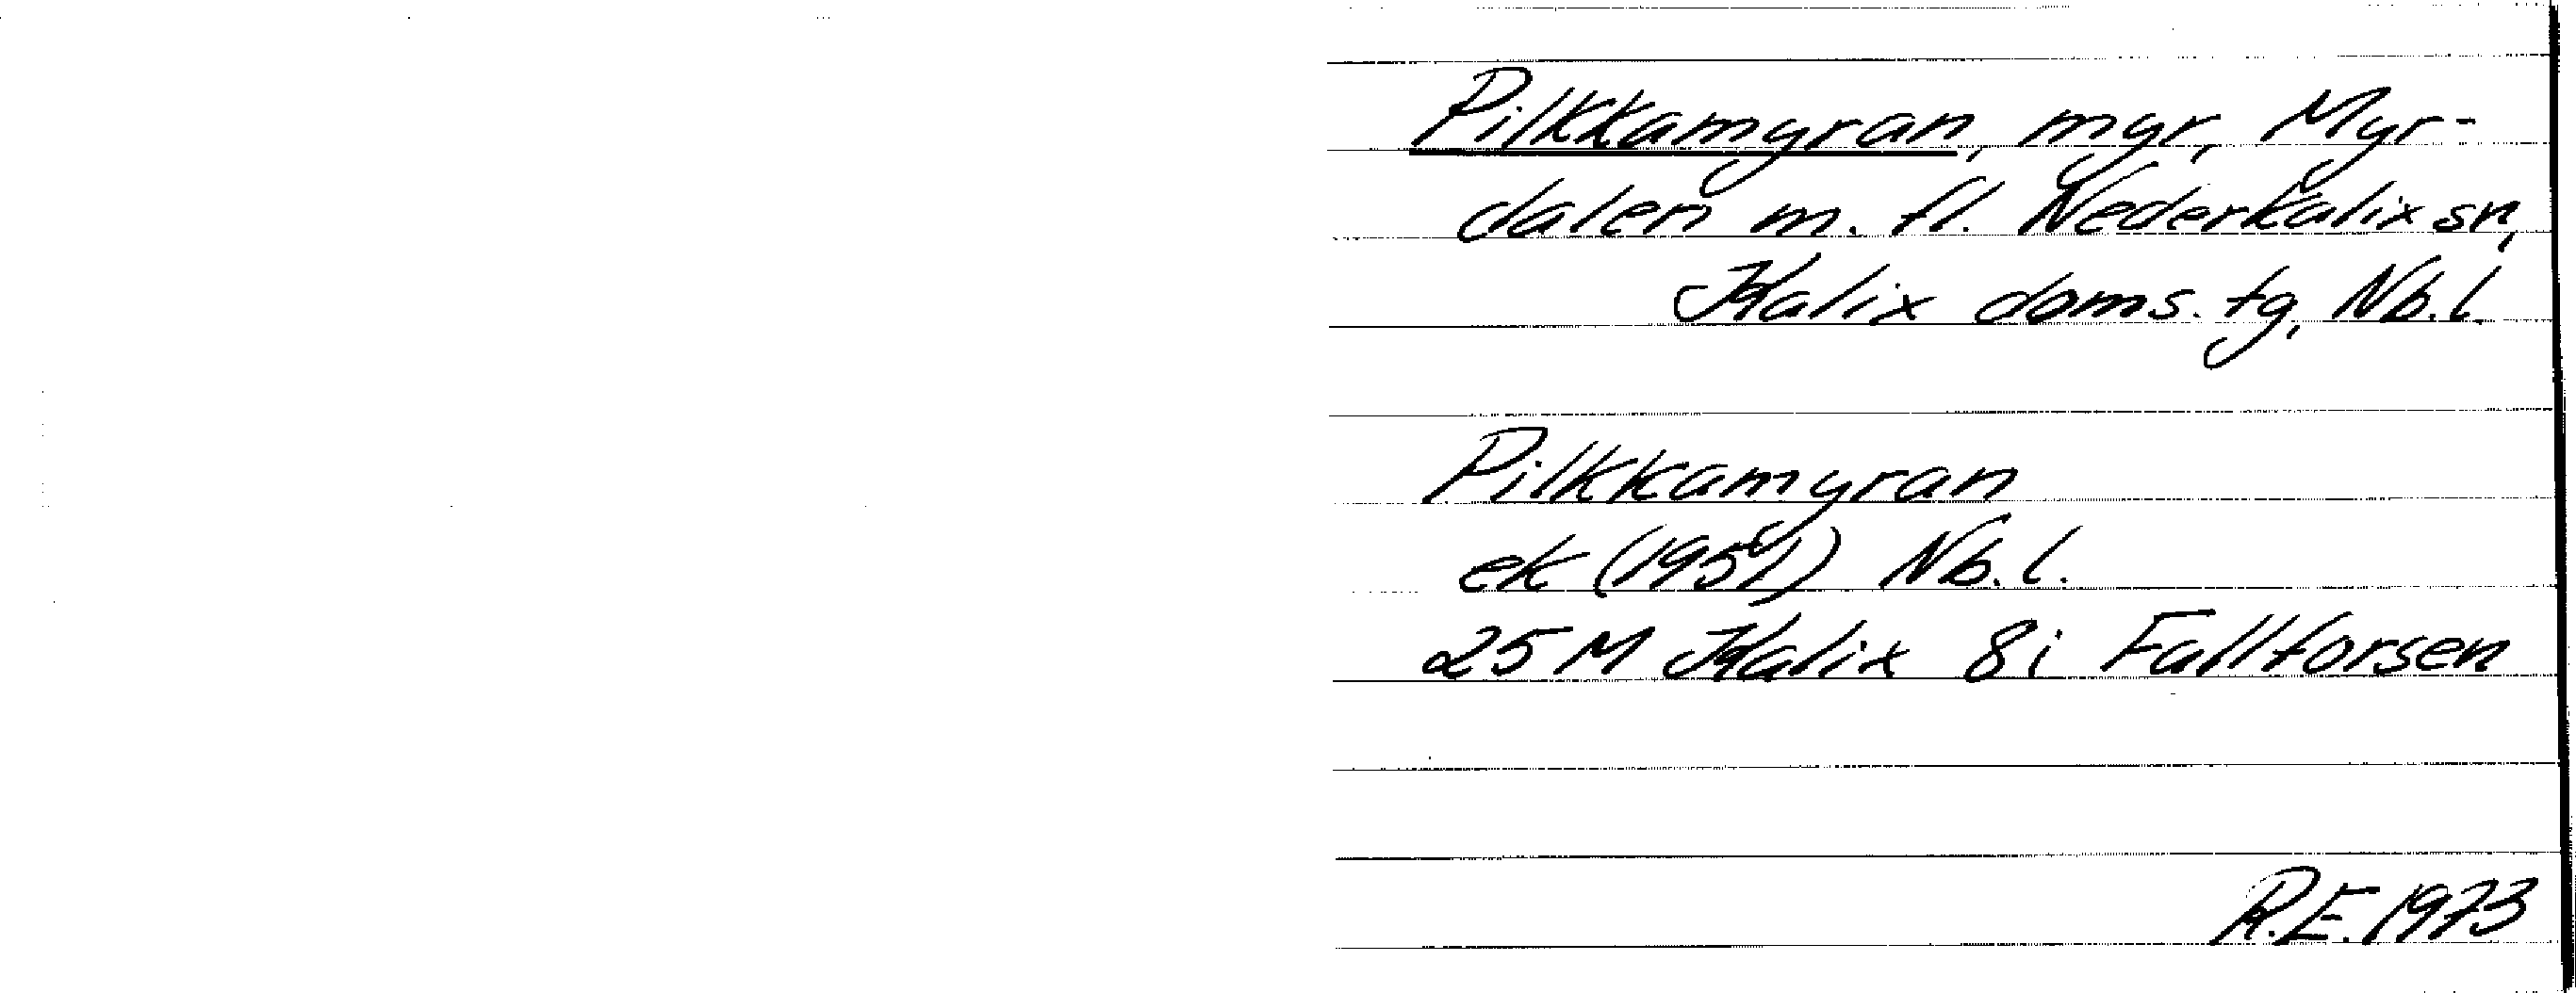 Pilkkamyran, myr, Myr-
dalen m. fl. Nederkalix sn,
Kalix doms. tg, Nb.l.
Pilkkamyran
ek (1951) Nb.l.
25 M Kalix 8i Fallforsen
R.E. 1973